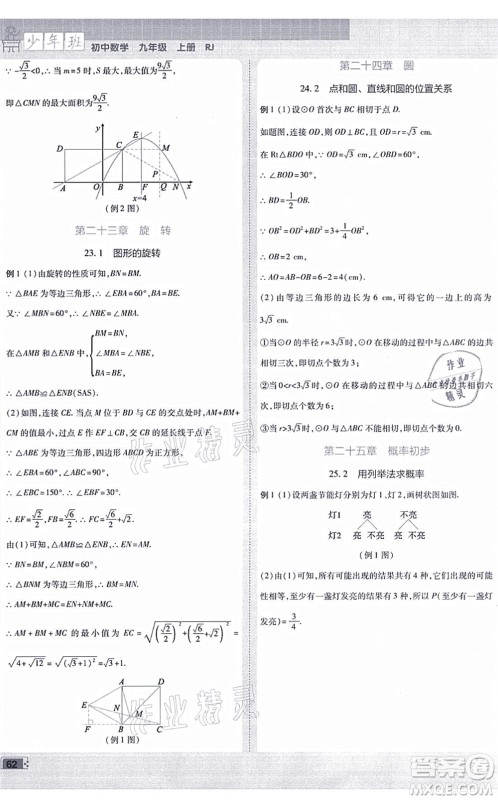 少年班 初中数学 九年级 上册 RJ
∵ -√3/2<0,∴ 当 m=5 时,S有最大值 9√3/2,
即△CMN 的最大面积为 9√3/2.
y
D C E M
A O B F Q N x
x=4
(例 2 图)
第二十三章 旋 转
23.1 图形的旋转
例 1 (1)由旋转的性质可知,BN=BM.
∵ △BAE 为等边三角形,∴ ∠EBA=60°.
又∵ ∠MBN=60°,∴ ∠NBE=∠MBA.
在△AMB 和△ENB 中,{BM=BN, ∠MBA=∠NBE, BA=BE,
∴ △AMB≌△ENB(SAS).
(2)如图,连接 CE. 当点 M 位于 BD 与 CE 的交点处时,AM+BM+
CM 的值最小. 过点 E 作 EF⊥BC,交 CB 的延长线于点 F.
∵ △ABE 为等边三角形,四边形 ABCD 为正方形,
∴ ∠EBC=150°,∴ ∠EBF=30°,
∴ EF=√2/2,FB=√6/2.
由(1)可知,△AMB≌△ENB,∴ AM=EN.
∵ △BNM 为等边三角形,∴ BM=MN,
∴ AM+BM+MC=EN+MN+MC=EC,
∴ AM + BM + MC 的最小值为 EC=√((√2/2)²+(√6/2+√2)²)
=√(4+√12)=√((√3+1)²)=√3+1.
A D
E
N M
F B C
(例 1 图)
62
第二十四章 圆
24.2 点和圆、直线和圆的位置关系
例 1 (1)设⊙O 首次与 BC 相切于点 D.
如题图,连接 OD,则有 OD⊥BC,且 OD=r=√3 cm.
在 Rt△BDO 中,∵ ∠OBD=60°,
∴ ∠BOD=30°,
∴ BD=1/2 OB.
∵ OB²=OD²+BD²,∴ OB²=(√3)²+1/4 OB²,
∴ OB=2 cm,
∴ AO=AB-OB=6-2=4(cm).
(2)由等边三角形的边长为 6 cm,可得它的一边上的高为
3√3 cm.
①当⊙O 的半径 r=3√3 cm 时,⊙O 在移动的过程中与△ABC 的边共
相切三次,即切点个数为 3;
②当 0<r<3√3 cm 时,⊙O 在移动的过程中与△ABC 的边共相切六
次,即切点个数为 6;
③当 r>3√3 cm 时,⊙O 与△ABC 不能相切,即切点个数为 0.
第二十五章 概率初步
25.2 用列举法求概率
例 1 (1)设两盏节能灯分别为灯 1、灯 2,画树状图如下.
灯1 亮 不亮
灯2 亮 不亮 亮 不亮
(例 1 图)
(2)由(1)可知,所有可能出现的结果共有 4 种,它们出现的可能
性相等,至少有一盏灯发亮的结果有 3 种,所以 P(至少有一盏灯
发亮)=3/4.
作业精灵
作业精灵
作业
精灵
答案圈